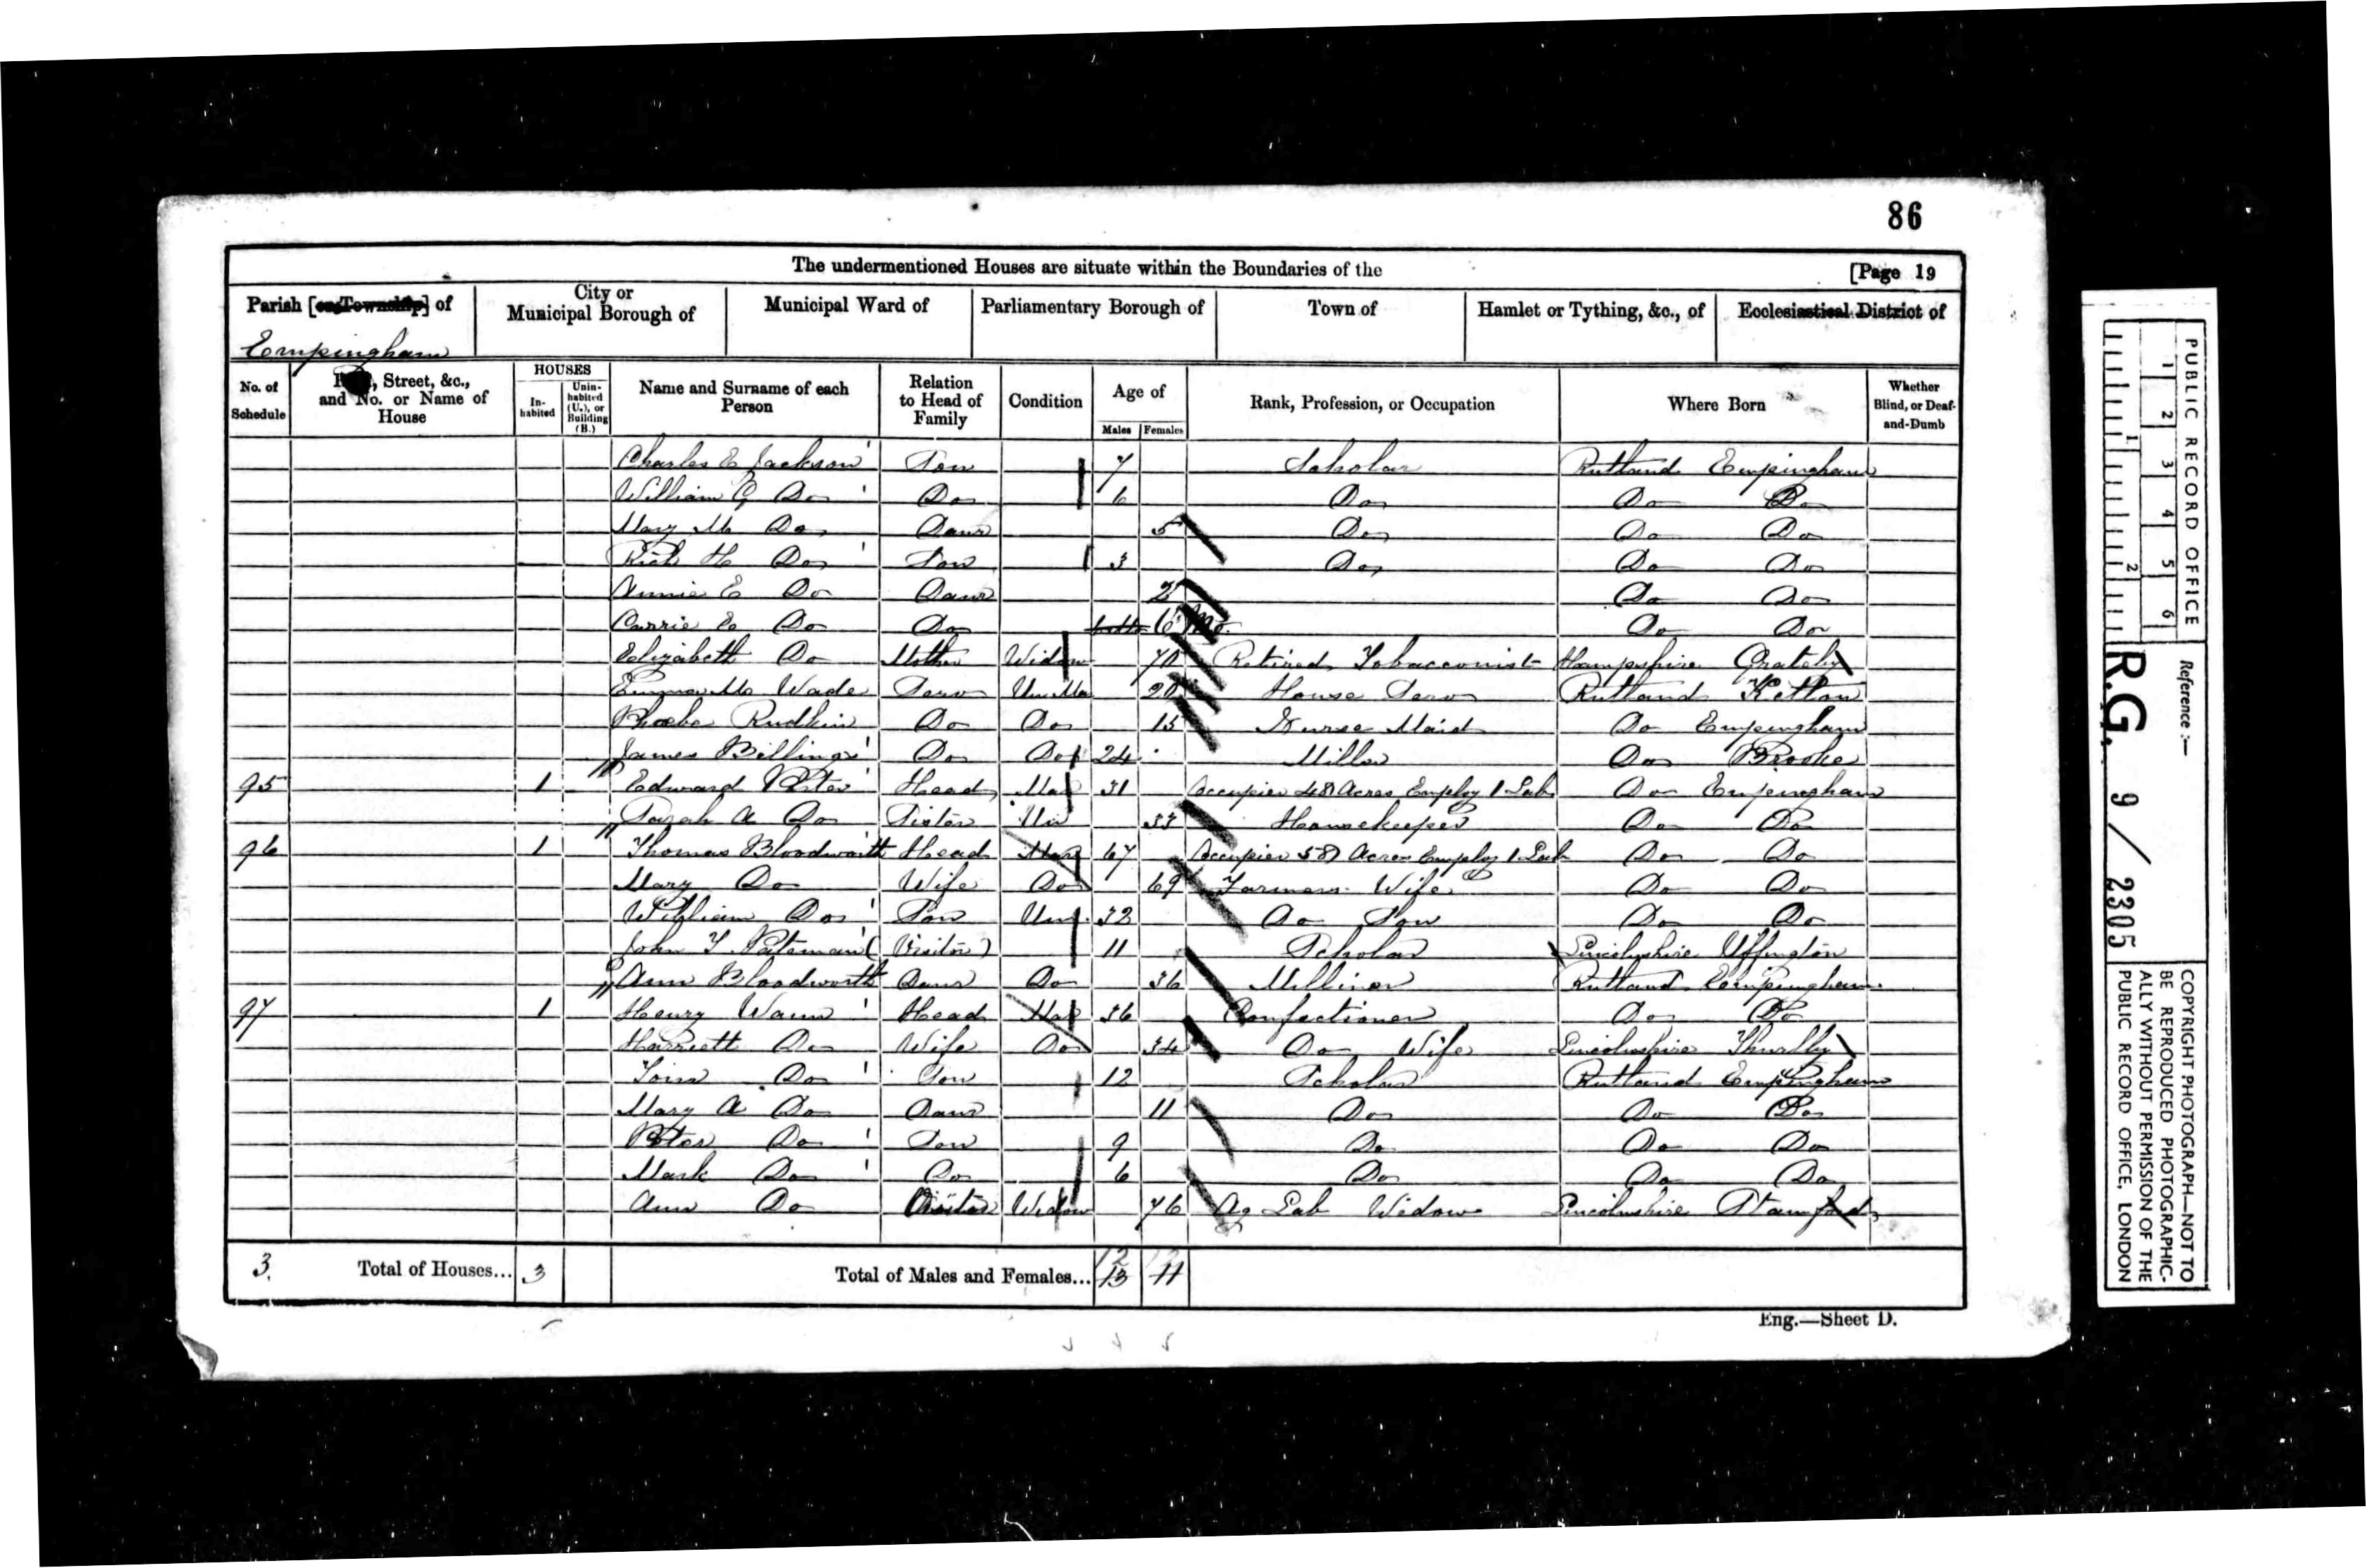 86
The undermentioned Houses are situate within the Boundaries of the [Page 19
Parish [or Township] of City or Municipal Borough of Municipal Ward of Parliamentary Borough of Town of Hamlet or Tything, &c., of Ecclesiastical District of
Empingham
No. of Schedule Street, &c., and No. or Name of House HOUSES In-habited Unin-habited (U.), or Building (B.) Name and Surname of each Person Relation to Head of Family Condition Age of Males Females Rank, Profession, or Occupation Where Born Whether Blind, or Deaf-and-Dumb
Charles E Jackson Son 7 Scholar Rutland Empingham
William G Do Do 6 Do Do Do
Mary M Do Daur 5 Do Do Do
Rich H Do Son 3 Do Do Do
Annie E Do Daur 2 Do Do
Carrie E Do Do 6 Mo. Do Do
Elizabeth Do Mother Widow 70 Retired Tobacconist Hampshire Grately
Emma M Wade Serv Un Ma 20 House Serv Rutland Ketton
Phoebe Rudkin Do Do 15 Nurse Maid Do Empingham
James Billings Do Do 24 Miller Do Brooke
95 1 Edward Porter Head Mar 31 Occupier 48 Acres Employ 1 Lab Do Empingham
Sarah A Do Sister Un 33 Housekeeper Do Do
96 1 Thomas Bloodworth Head Mar 67 Occupier 58 Acres Employ 1 Lab Do Do
Mary Do Wife Do 69 Farmers Wife Do Do
William Do Son Un 32 Do Son Do Do
John T Pateman (Visitor) 11 Scholar Lincolnshire Uffington
Ann Bloodworth Daur Do 36 Milliner Rutland Empingham
97 1 Henry Wann Head Mar 36 Confectioner Do Do
Harriett Do Wife Do 34 Do Wife Lincolnshire Thurlby
Do Son 12 Scholar Rutland Empingham
Mary A Do Daur 11 Do Do Do
Peter Do Son 9 Do Do Do
Mark Do Do 6 Do Do Do
Ann Do Visitor Widow 76 Ag Lab Widow Lincolnshire Stamford
3. Total of Houses... 3 Total of Males and Females... 12 12
13 11
Eng.—Sheet D.
PUBLIC RECORD OFFICE
1 2 3 4 5 6
1 2
Reference :—
R.G. 9 / 2305
COPYRIGHT PHOTOGRAPH—NOT TO
BE REPRODUCED PHOTOGRAPHIC-
ALLY WITHOUT PERMISSION OF THE
PUBLIC RECORD OFFICE, LONDON